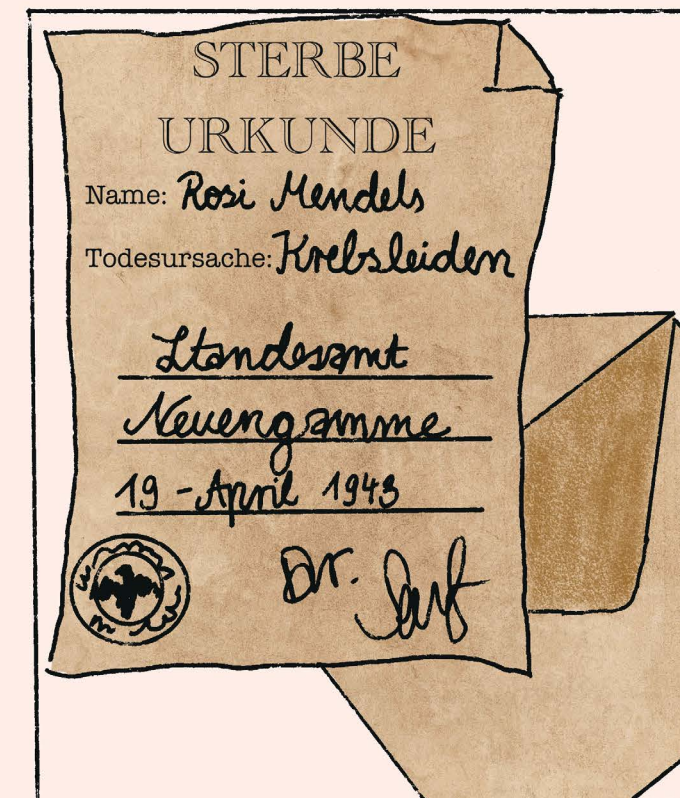 STERBE
URKUNDE
Name: Rosi Mendels
Todesursache: Krebsleiden
Standesamt
Neuengamme
19 - April 1943
Dr.